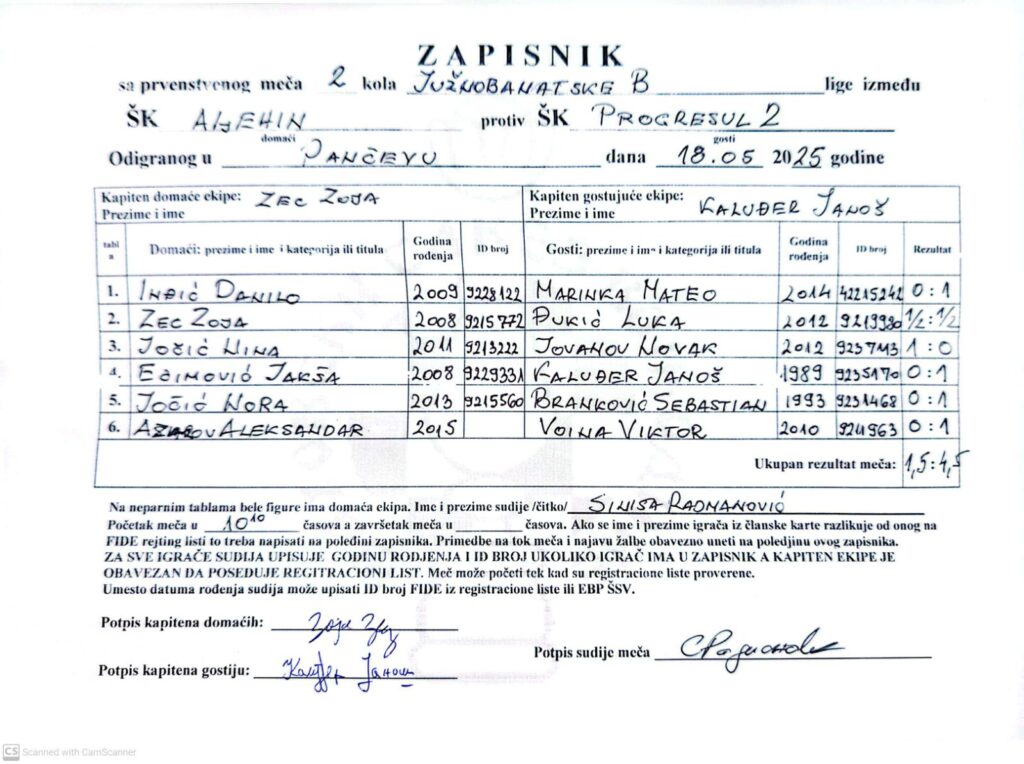 ZAPISNIK
sa prvenstvenog meča 2 kola JUŽNOBANATSKE B lige između
ŠK ALJEHIN protiv ŠK PROGRESUL 2
domaći gosti
Odigranog u PANČEVU dana 18.05 2025 godine
Kapiten domaće ekipe: ZEC ZOJA Kapiten gostujuće ekipe: KALUĐER JANOŠ
Prezime i ime Prezime i ime
tabla Domaći: prezime i ime i kategorija ili titula Godina rođenja ID broj Gosti: prezime i ime i kategorija ili titula Godina rođenja ID broj Rezultat
1. INĐIĆ DANILO 2009 9228122 MARINKA MATEO 2014 42215242 0 : 1
2. ZEC ZOJA 2008 9215772 ĐUKIĆ LUKA 2012 9219980 1/2 : 1/2
3. JOČIĆ NINA 2011 9213222 JOVANOV NOVAK 2012 9237113 1 : 0
4. EĐIMOVIĆ JAKŠA 2008 9229331 KALUĐER JANOŠ 1989 9235170 0 : 1
5. JOČIĆ NORA 2013 9215560 BRANKOVIĆ SEBASTIAN 1993 9231468 0 : 1
6. ALEKSANDAR 2015 VOINA VIKTOR 2010 9241963 0 : 1
Ukupan rezultat meča: 1,5 : 4,5
Na neparnim tablama bele figure ima domaća ekipa. Ime i prezime sudije /čitko/ SINISA RADMANOVIĆ
Početak meča u 10 10 časova a završetak meča u časova. Ako se ime i prezime igrača iz članske karte razlikuje od onog na
FIDE rejting listi to treba napisati na poleđini zapisnika. Primedbe na tok meča i najavu žalbe obavezno uneti na poledjinu ovog zapisnika.
ZA SVE IGRAČE SUDIJA UPISUJE GODINU RODJENJA I ID BROJ UKOLIKO IGRAČ IMA U ZAPISNIK A KAPITEN EKIPE JE
OBAVEZAN DA POSEDUJE REGITRACIONI LIST. Meč može početi tek kad su registracione liste proverene.
Umesto datuma rođenja sudija može upisati ID broj FIDE iz registracione liste ili EBP ŠSV.
Potpis kapitena domaćih:
Potpis sudije meča
Potpis kapitena gostiju:
CS Scanned with CamScanner